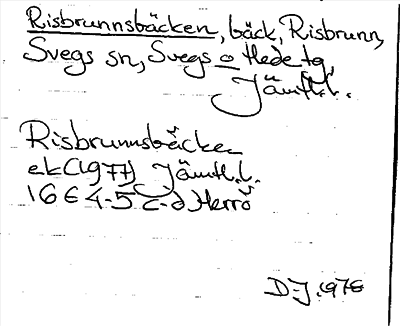 Risbrunnsbäcken, bäck, Risbrunn,
Svegs sn, Svegs o Hede tg,
Jämtl.l.
Risbrunnsbäcken
ek (1977) Jämtl.l.
16E 4-5 c-d Herrö
D-J. 1978